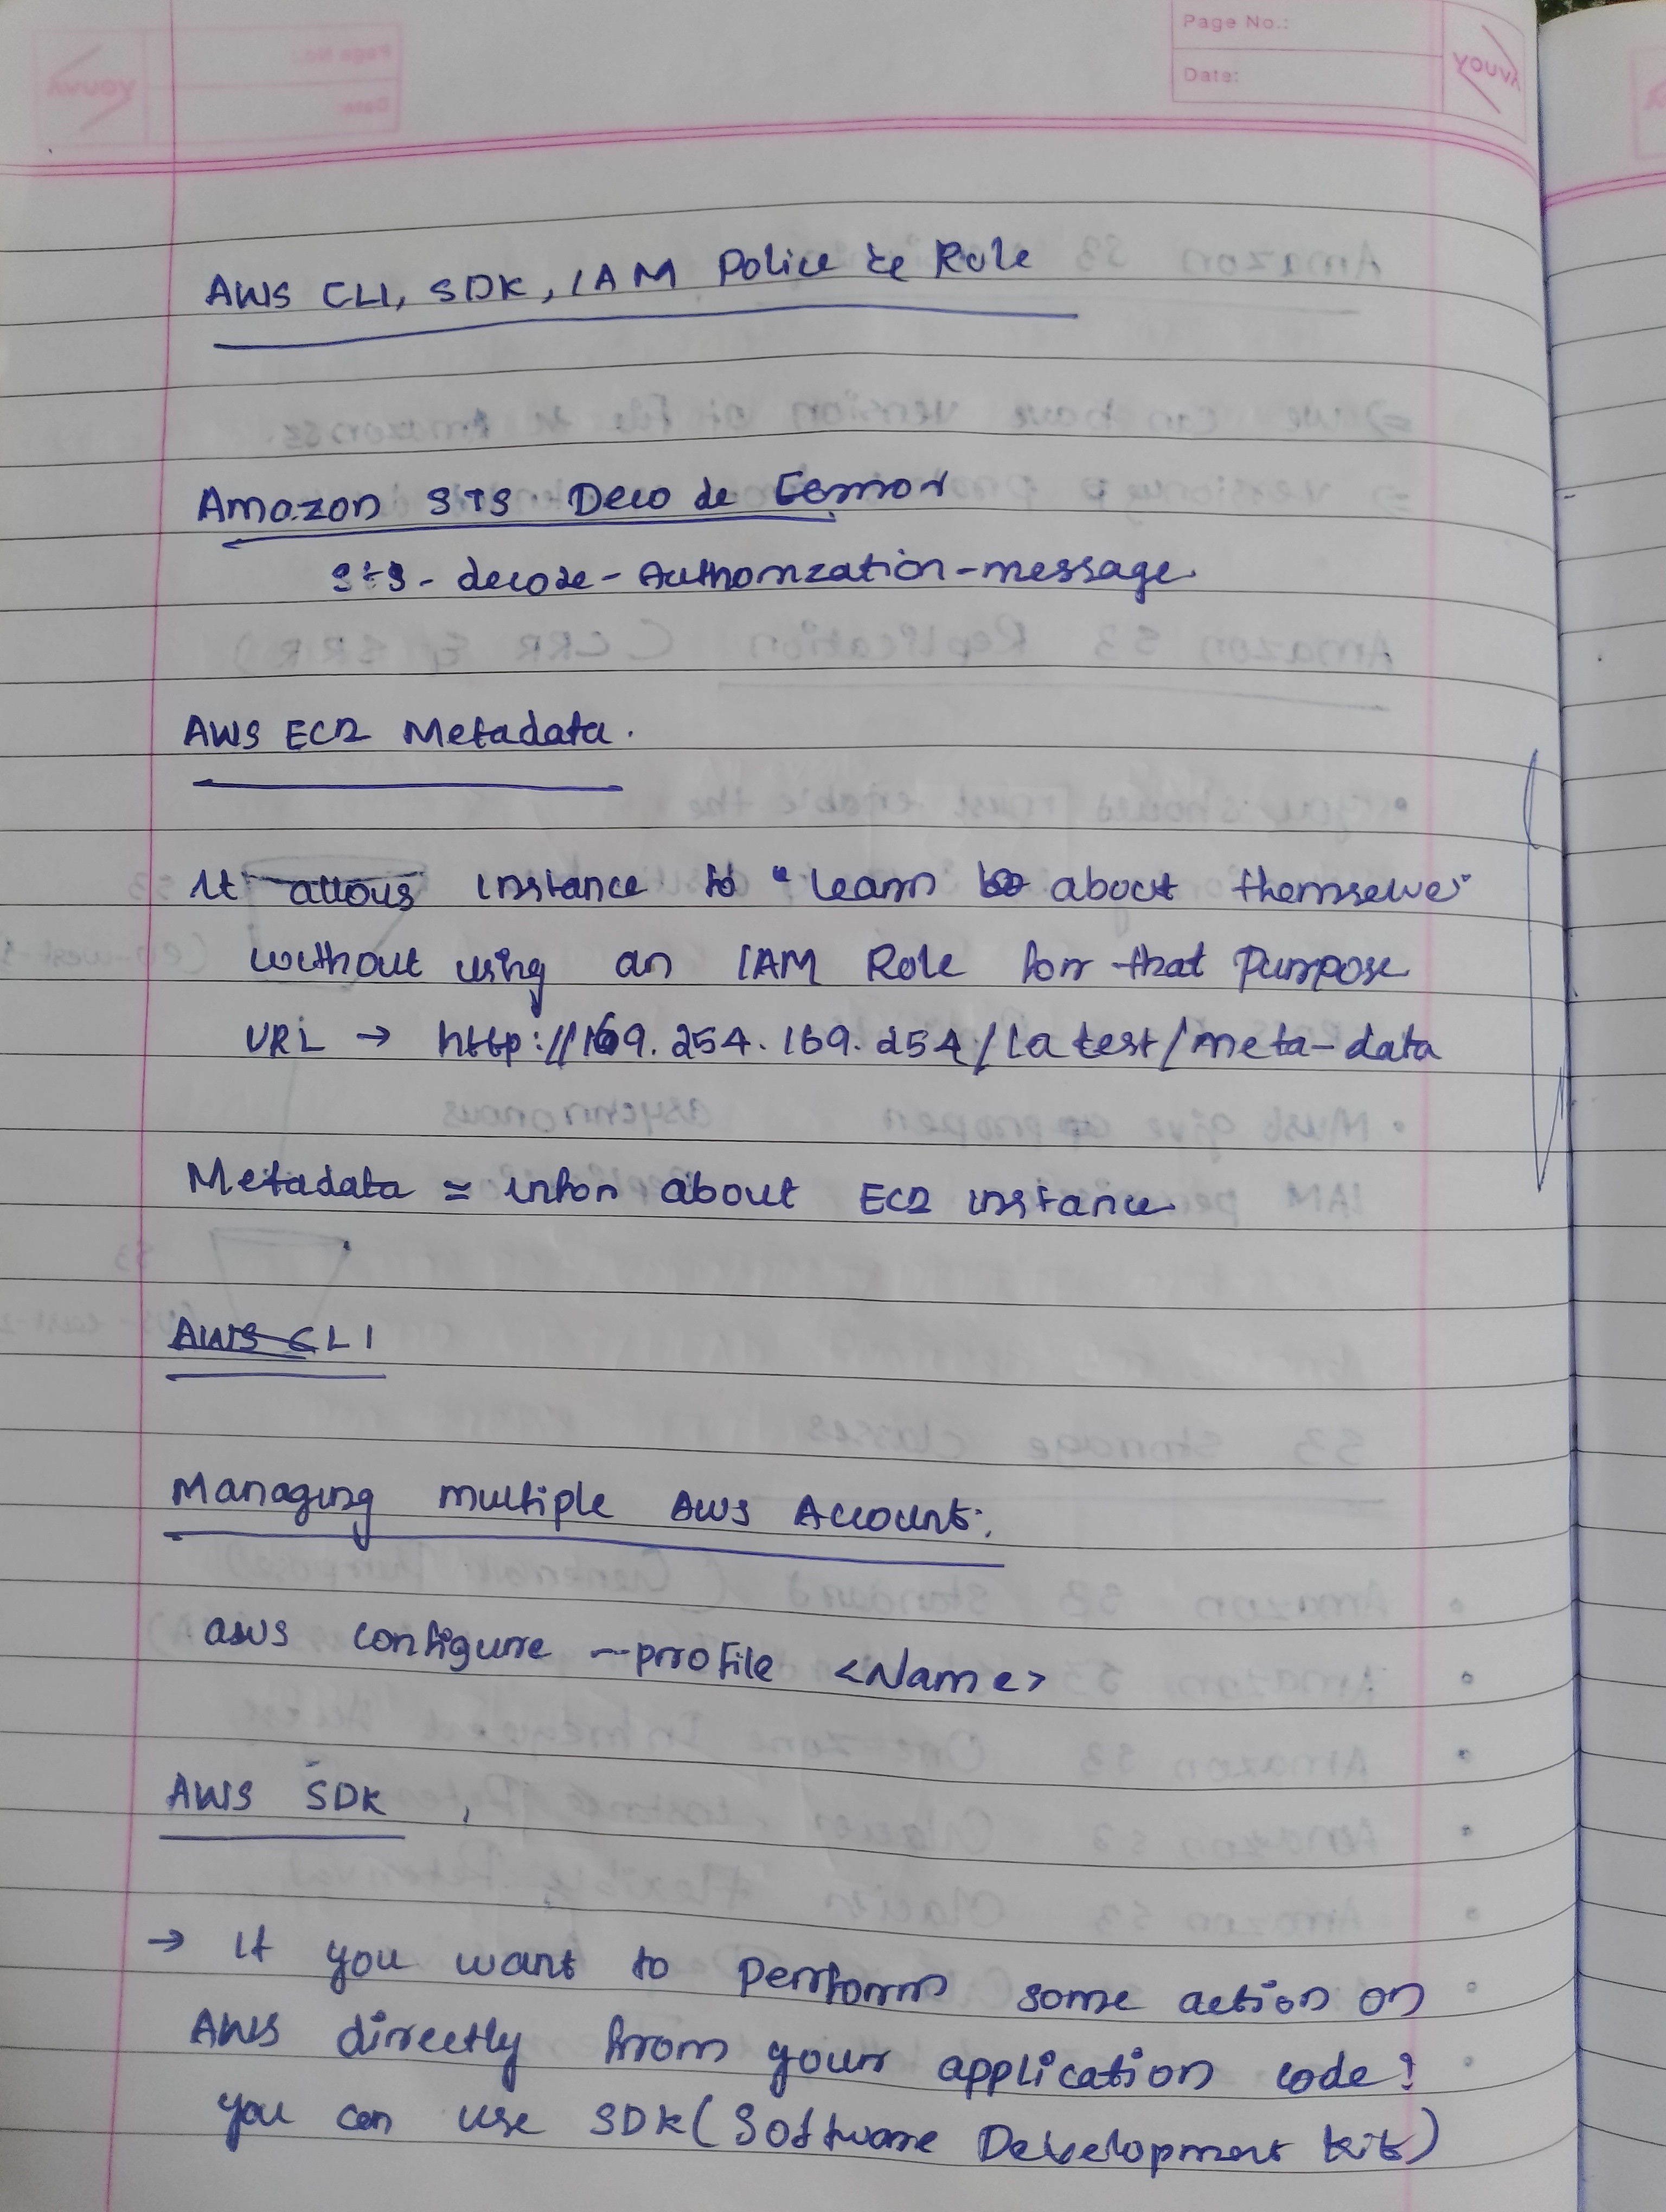 Page No.:
Date:
Ayuoy
AWS CLI, SDK, IAM Police & Role
Amazon STS Decode Error
sts-decode-Authorization-message
AWS EC2 Metadata.
It allous instance to "learn about themselve"
without using an IAM Role for that Purpose
URL → http://169.254.169.254/latest/meta-data
Metadata = infor about EC2 instance
AWS CLI
Managing multiple AWS Account:
aws configure --profile <Name>
AWS SDK,
→ If you want to perform some action on
AWS directly from your application code?
you can use SDK (Software Development kit)